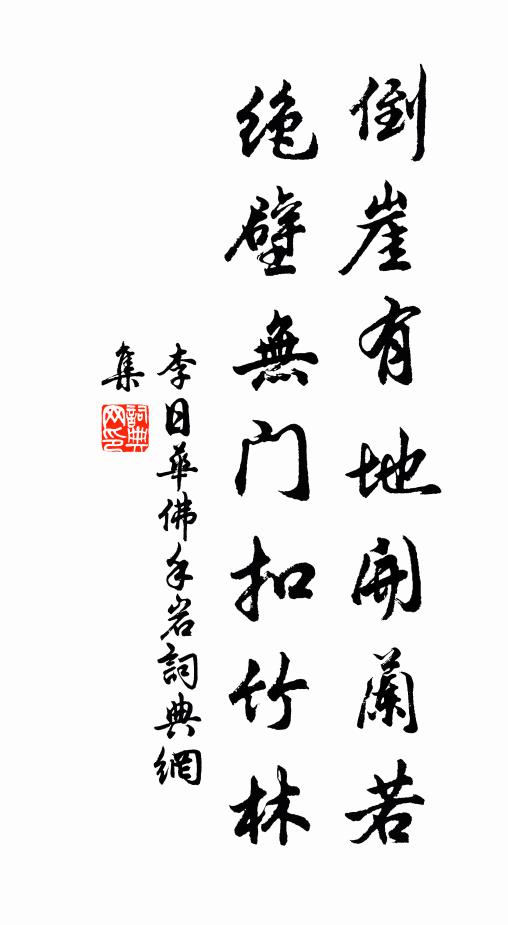 倒崖有地開蘭若
绝壁無門扣竹林
李日華佛手岩詞典網
集
詞典网印